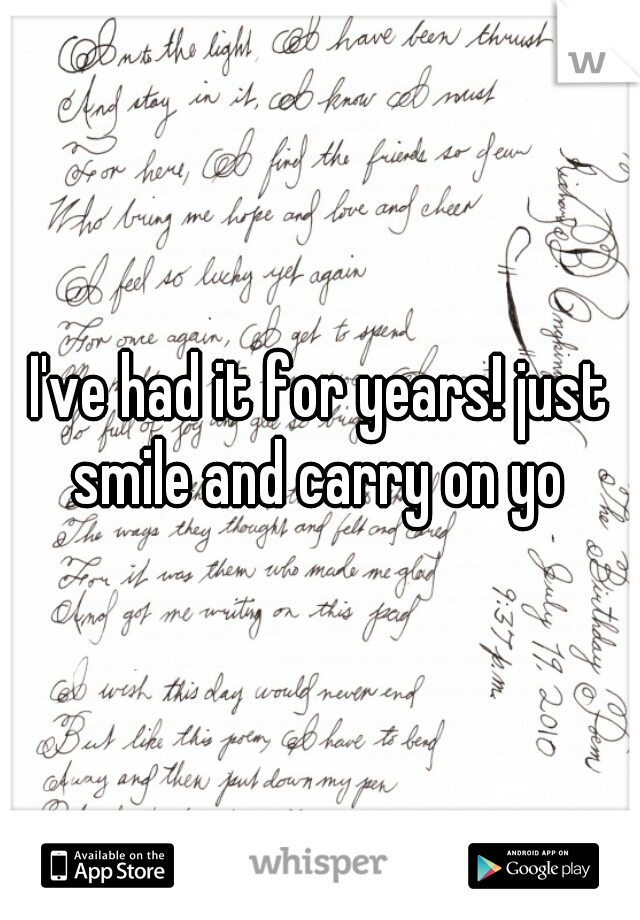 Into the light, I have been thrust
And stay in it, I know I must
For here, I find the friends so dear
Who bring me hope and love and cheer
I feel so lucky yet again
For once again, I get to spend
I've had it for years! just
So full of joy and
smile and carry on yo
The ways they thought and felt and cared
For it was them who made me glad
And got me writing on this pad
I wish this day would never end
But like this poem, I have to bend
Away and then put down my pen
The Birthday Poem
- July 19, 2010
9:37 p.m.
Richard
w
Available on the
App Store
whisper
ANDROID APP ON
Google play